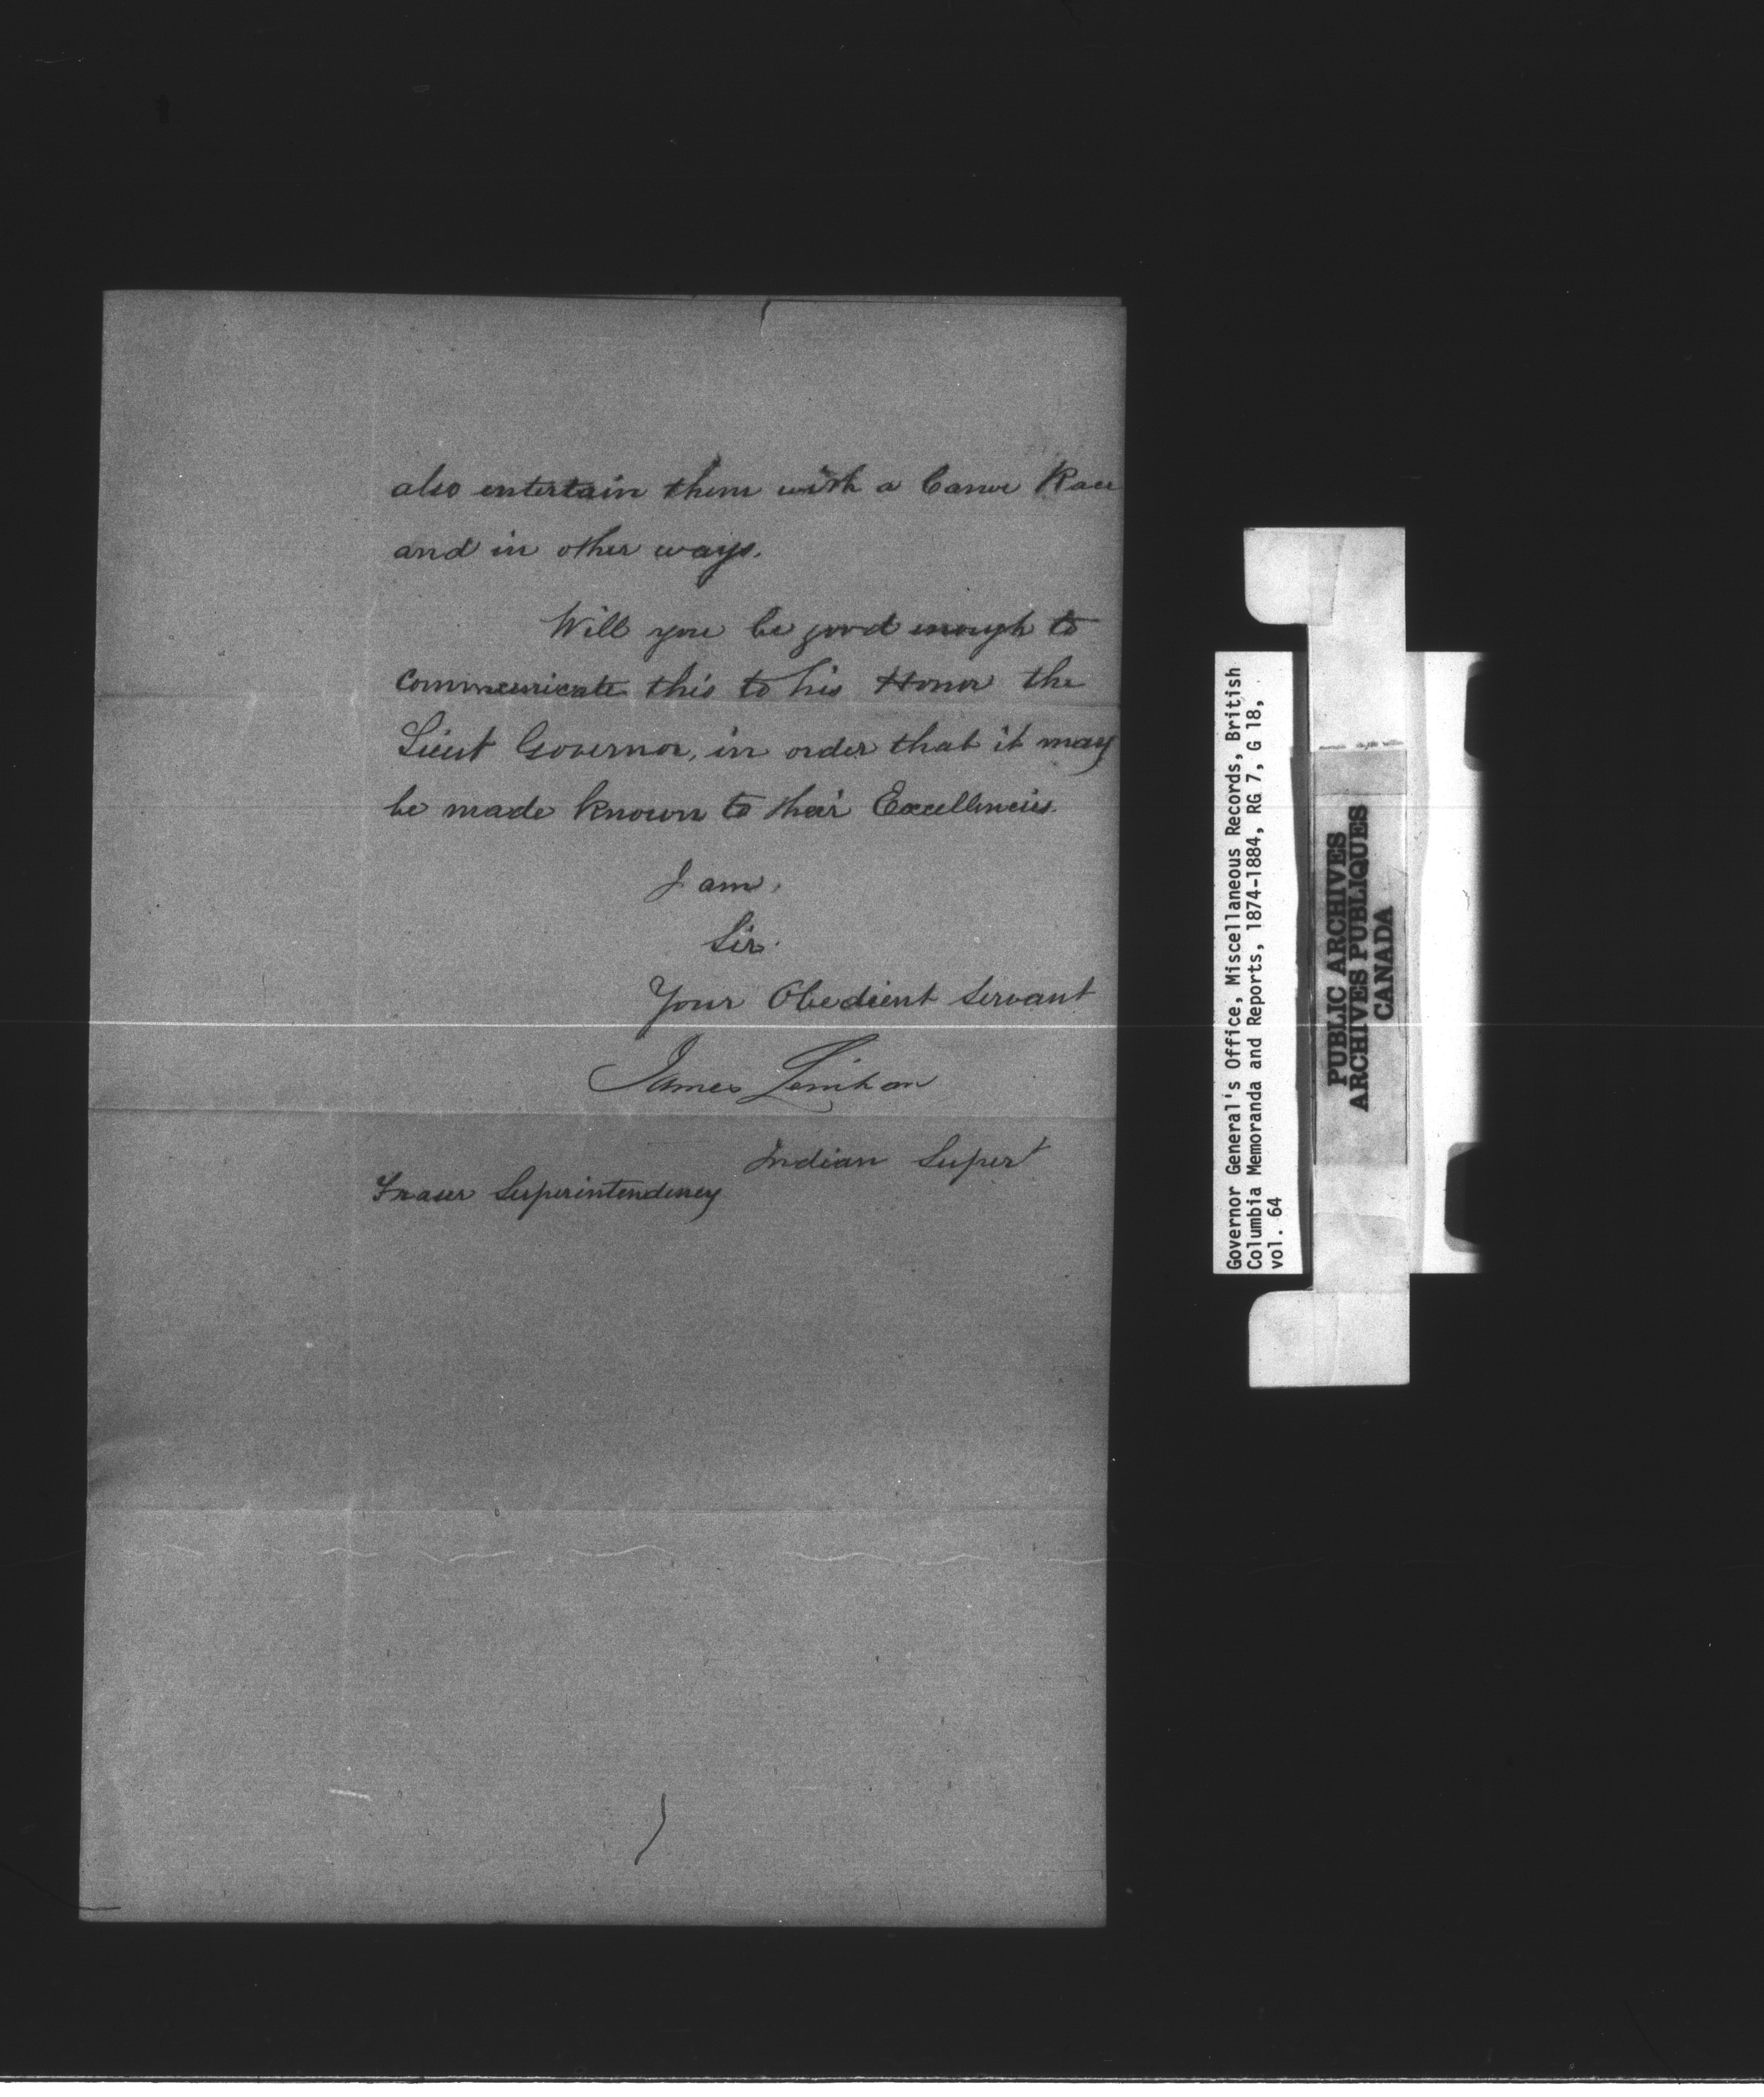 also entertain them with a Canoe Race
and in other ways.
Will you be good enough to
communicate this to his Honor the
Lieut Governor, in order that it may
be made known to their Excellencies.
I am,
Sir.
Your Obedient Servant
James Lenihan
Indian Supert
Fraser Superintendency
Governor General's Office, Miscellaneous Records, British
Columbia Memoranda and Reports, 1874-1884, RG 7, G 18,
vol. 64
PUBLIC ARCHIVES
ARCHIVES PUBLIQUES
CANADA